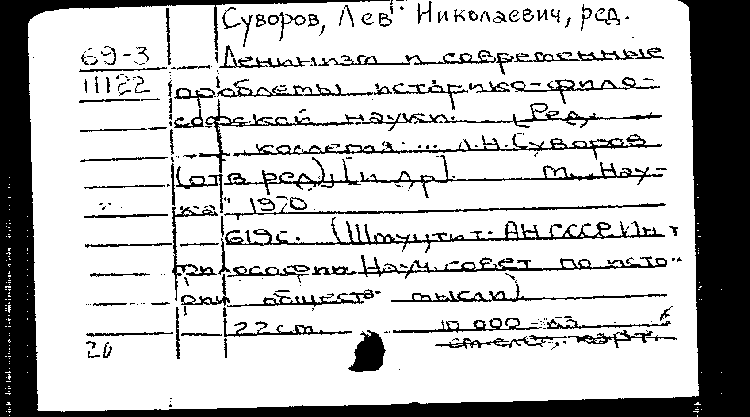 Суворов, Лев Николаевич, ред.
69-3 Ленинизм и современные
11122 проблемы историко-фило-
софской науки. [Ред.
коллегия: ... Л.Н. Суворов
(отв. ред.) [и др]. М., "Нау-
ка", 1970
619 с. (Шмуцтит: АН СССР. Ин-т
философии. Науч. совет по исто-
рии обществ. мысли)
22 см. 10 000 экз.
20